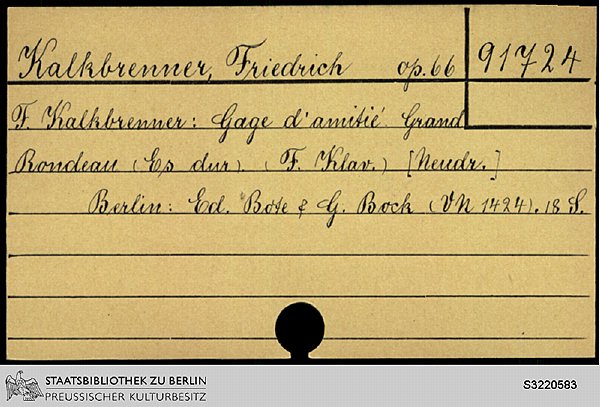 Kalkbrenner, Friedrich op. 66 91724
F. Kalkbrenner: Gage d'amitié Grand
Rondeau (Es dur). (F. Klav.) [Neudr.]
Berlin: Ed. Bote & G. Bock (VN 1424). 18 S.
STAATSBIBLIOTHEK ZU BERLIN
PREUSSISCHER KULTURBESITZ
S3220583